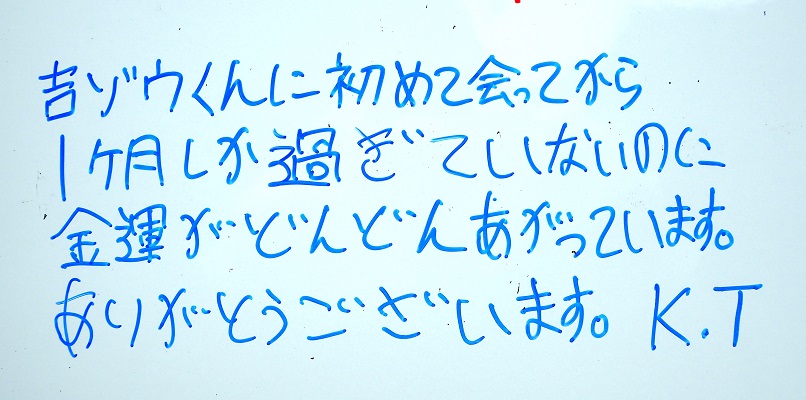 吉ゾウくんに初めて会ってから
1ヶ月しか過ぎていないのに
金運がどんどんあがっています。
ありがとうございます。K.T